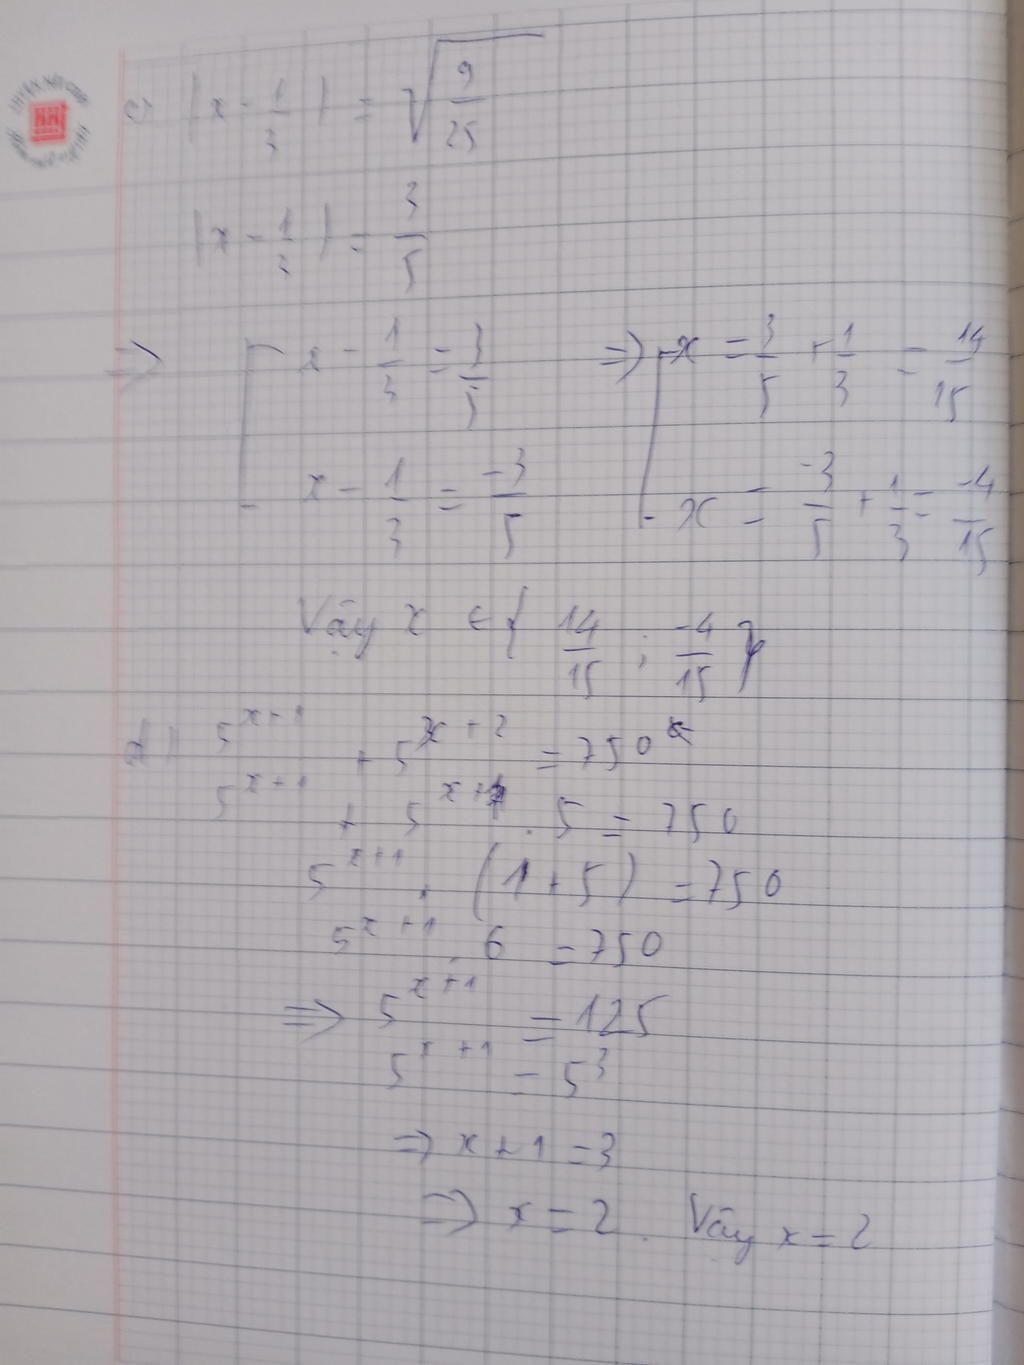 c) |x - 1/3| = √(9/25)
|x - 1/3| = 3/5
⇒ [ x - 1/3 = 3/5 ⇒ [ x = 3/5 + 1/3 = 14/15
x - 1/3 = -3/5 x = -3/5 + 1/3 = -4/15
Vậy x ∈ { 14/15 ; -4/15 }
d) 5^(x+1) + 5^(x+2) = 750
5^(x+1) + 5^(x+1) . 5 = 750
5^(x+1) . (1 + 5) = 750
5^(x+1) . 6 = 750
⇒ 5^(x+1) = 125
5^(x+1) = 5^3
⇒ x + 1 = 3
⇒ x = 2. Vậy x = 2